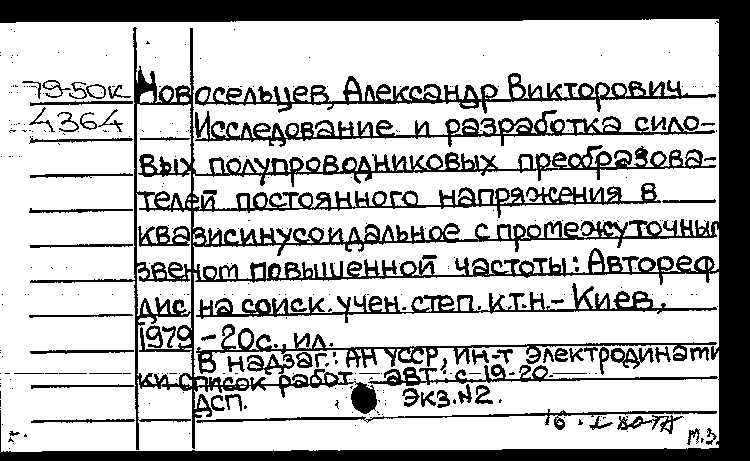 79-50к Новосельцев, Александр Викторович.
4364 Исследование и разработка сило-
вых полупроводниковых преобразова-
телей постоянного напряжения в
квазисинусоидальное с промежуточным
звеном повышенной частоты: Автореф.
дис. на соиск. учен. степ. к.т.н. – Киев,
1979 – 20с., ил.
В надзаг.: АН УССР, ин-т Электродинами
ки Список работ авт.: с 19-20.
ДСП. Экз.№2.
М.З.